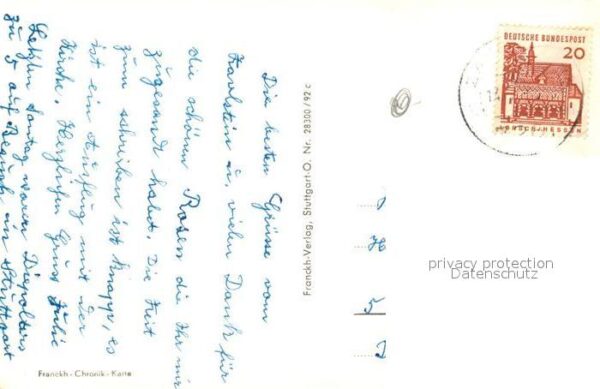 Die besten Grüsse vom
Zavelstein u. vielen Dank für
die schönen Rosen die Ihr mir
zugesandt habt. Die Zeit
zum schreiben ist knapp, es
ist ein Ausflug mit der
Kirche. Herzlichen Gruss Julie
Letzten Sonntag waren
zu 5 auf Besuch in Stuttgart
Franckh-Chronik-Karte
Franckh-Verlag, Stuttgart-O. Nr. 28300/92 c
DEUTSCHE BUNDESPOST
20
LORSCH/HESSEN
5
privacy protection
Datenschutz